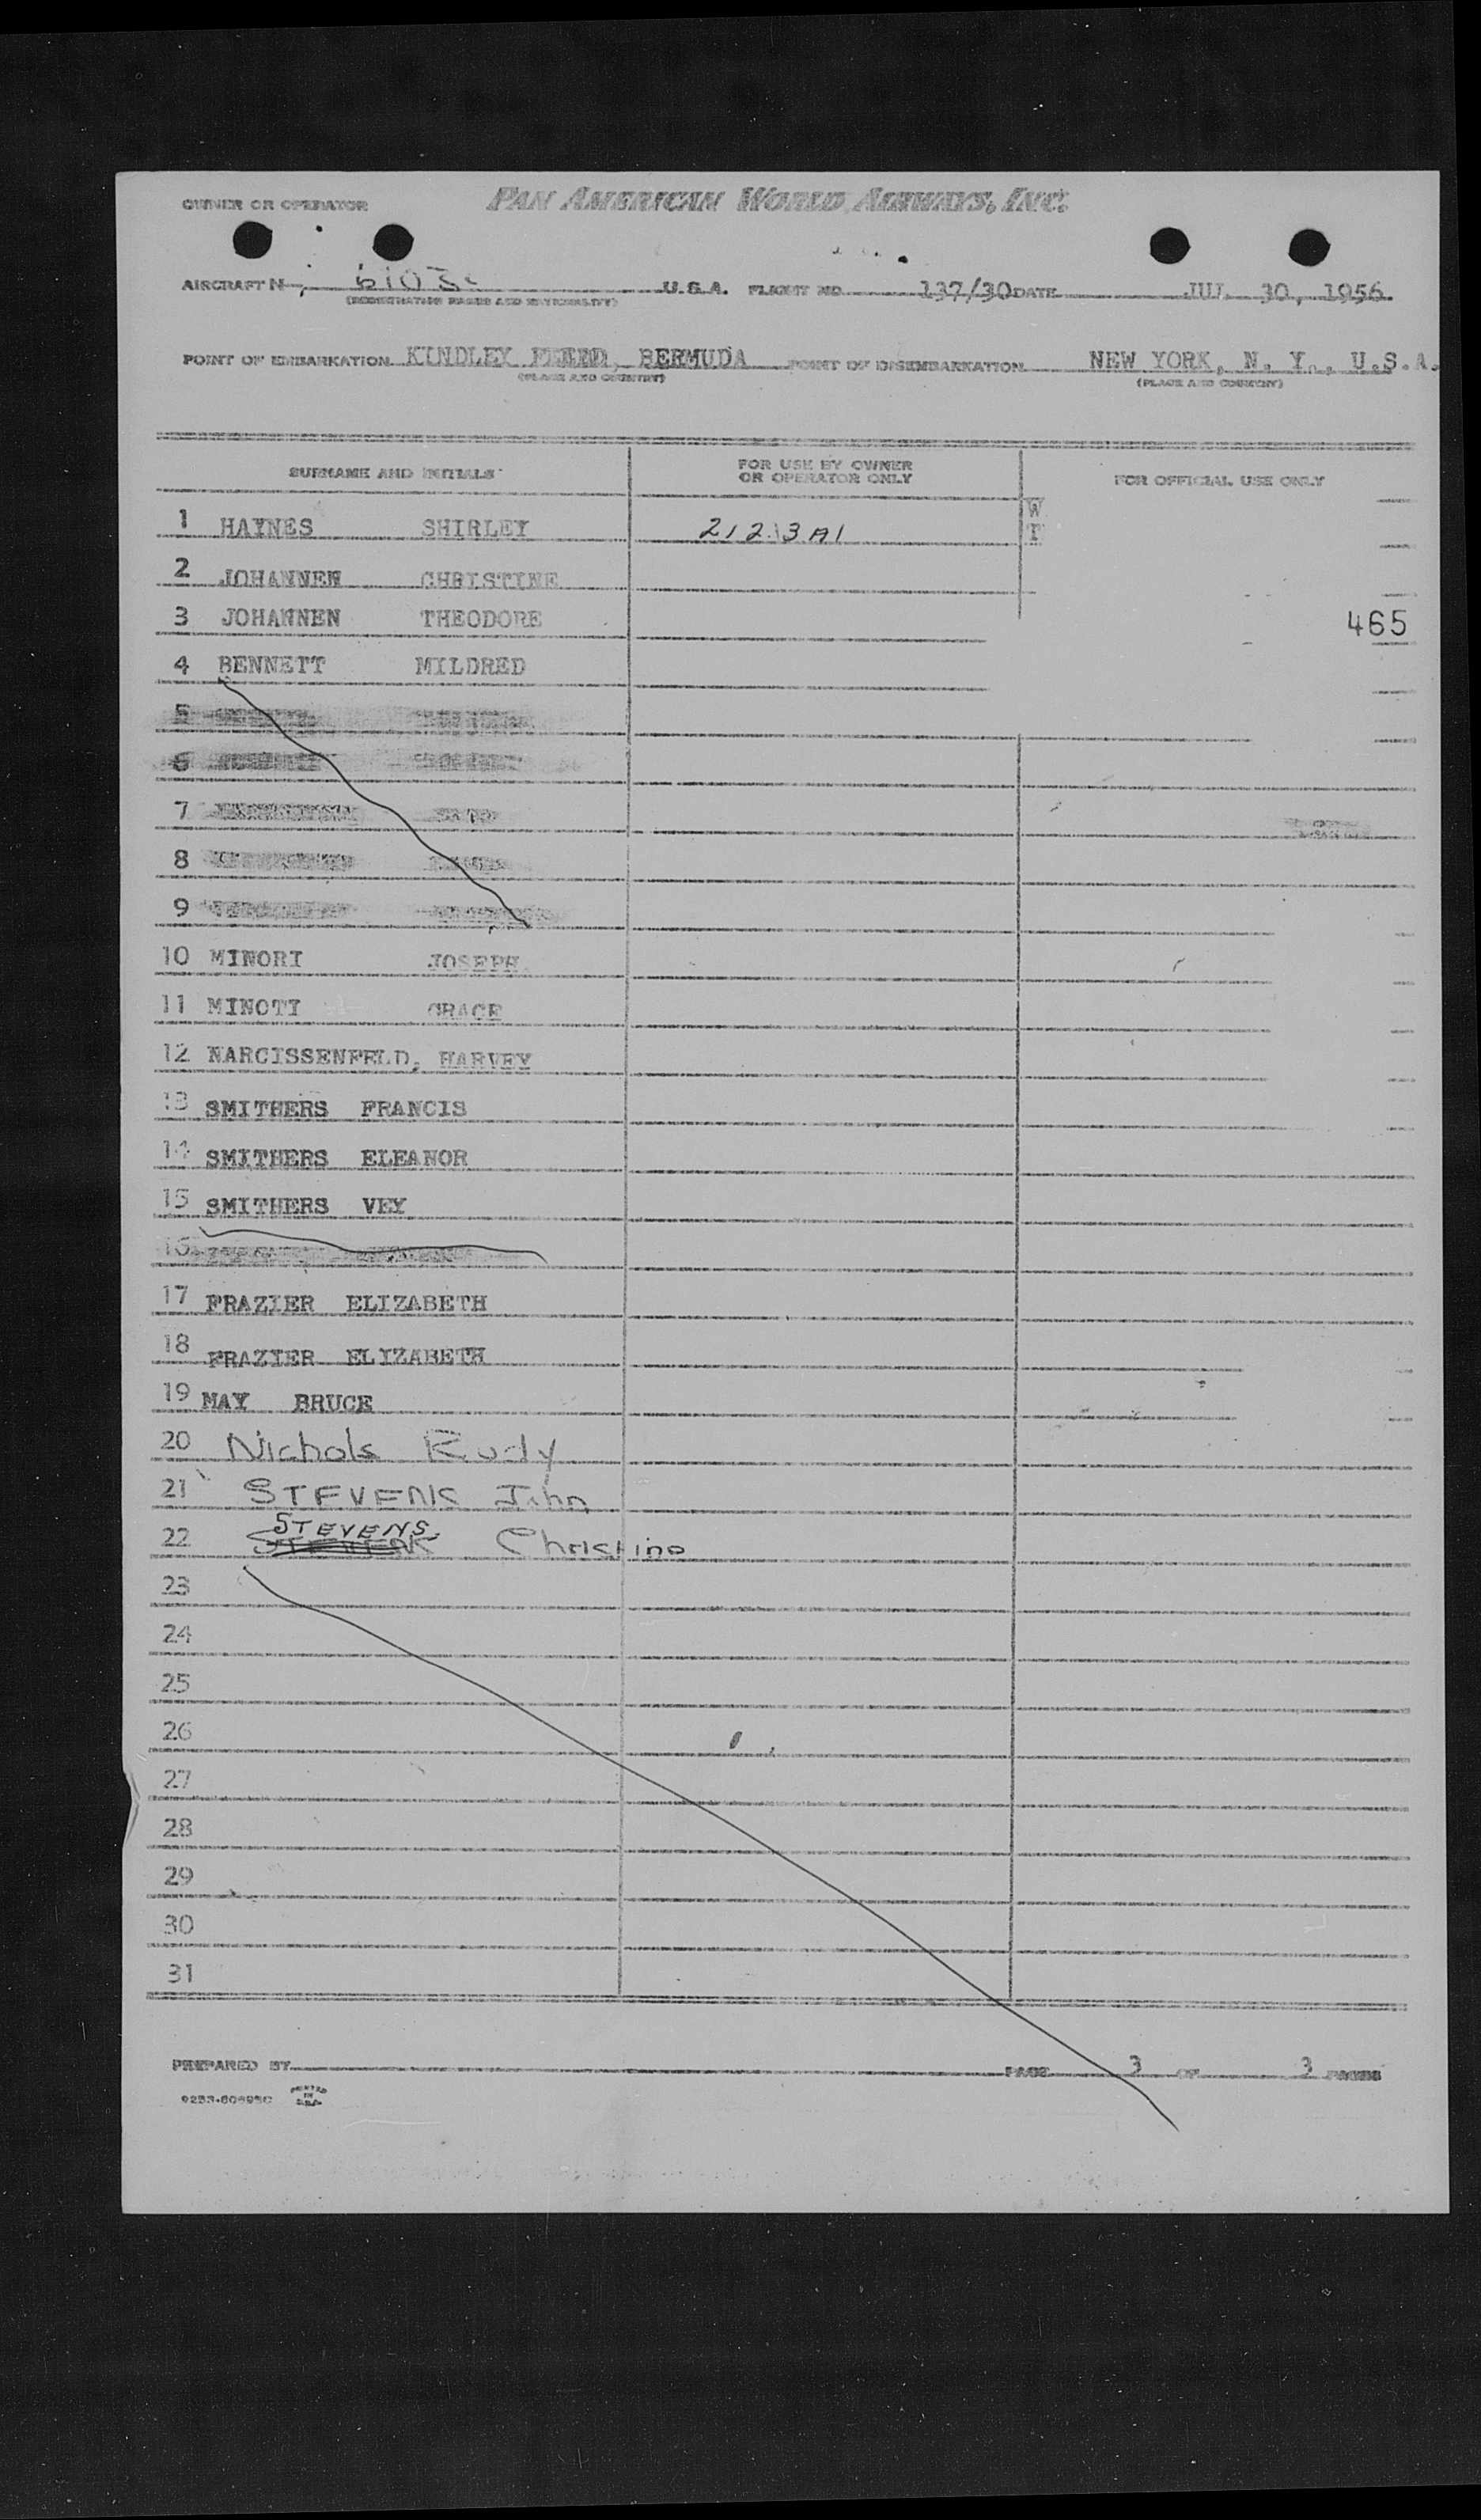 OWNER OR OPERATOR PAN AMERICAN WORLD AIRWAYS, INC.
AIRCRAFT N U.S.A. FLIGHT NO. 137/30 DATE JUL 30, 1956
(REGISTRATION MARKS AND NATIONALITY)
POINT OF EMBARKATION KINDLEY FIELD, BERMUDA POINT OF DISEMBARKATION NEW YORK, N. Y., U.S.A.
(PLACE AND COUNTRY) (PLACE AND COUNTRY)
SURNAME AND INITIALS FOR USE BY OWNER OR OPERATOR ONLY FOR OFFICIAL USE ONLY
1 HAYNES SHIRLEY 212 3 A1 W
T
2 JOHANNEN CHRISTINE
3 JOHANNEN THEODORE 465
4 BENNETT MILDRED
5
6
7
8
9
10 MINORI JOSEPH
11 MINOTI GRACE
12 NARCISSENFELD, HARVEY
13 SMITHERS FRANCIS
14 SMITHERS ELEANOR
15 SMITHERS VEY
16
17 FRAZIER ELIZABETH
18 FRAZIER ELIZABETH
19 MAY BRUCE
20 Nichols Rudy
21 STEVENS John
22 STEVENS Christine
23
24
25
26
27
28
29
30
31
PREPARED BY PAGE 3 OF 3 PAGES
PRINTED IN U.S.A.